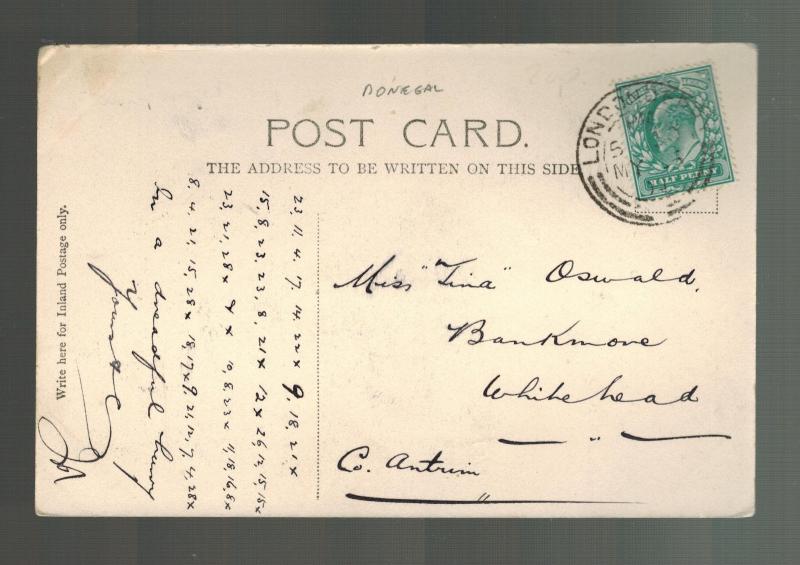 DONEGAL
POST CARD.
THE ADDRESS TO BE WRITTEN ON THIS SIDE
LONDON
MY
HALF PENNY
Write here for Inland Postage only.
23, 11, 4. 7. 14. 22x 9, 18, 21x
15, 8, 23. 23, 8, 21x 12x 26, 12, 15, 15x
23, 21, 28x 8, 23x 11, 18, 16, 8x
8, 4. 21, 15 28x 18, 17x 9. 21, 12, 7, 4, 28x
In a dreadful hurry
yours
Miss "Tina" Oswald,
Bankmore
Whitehead
Co. Antrim